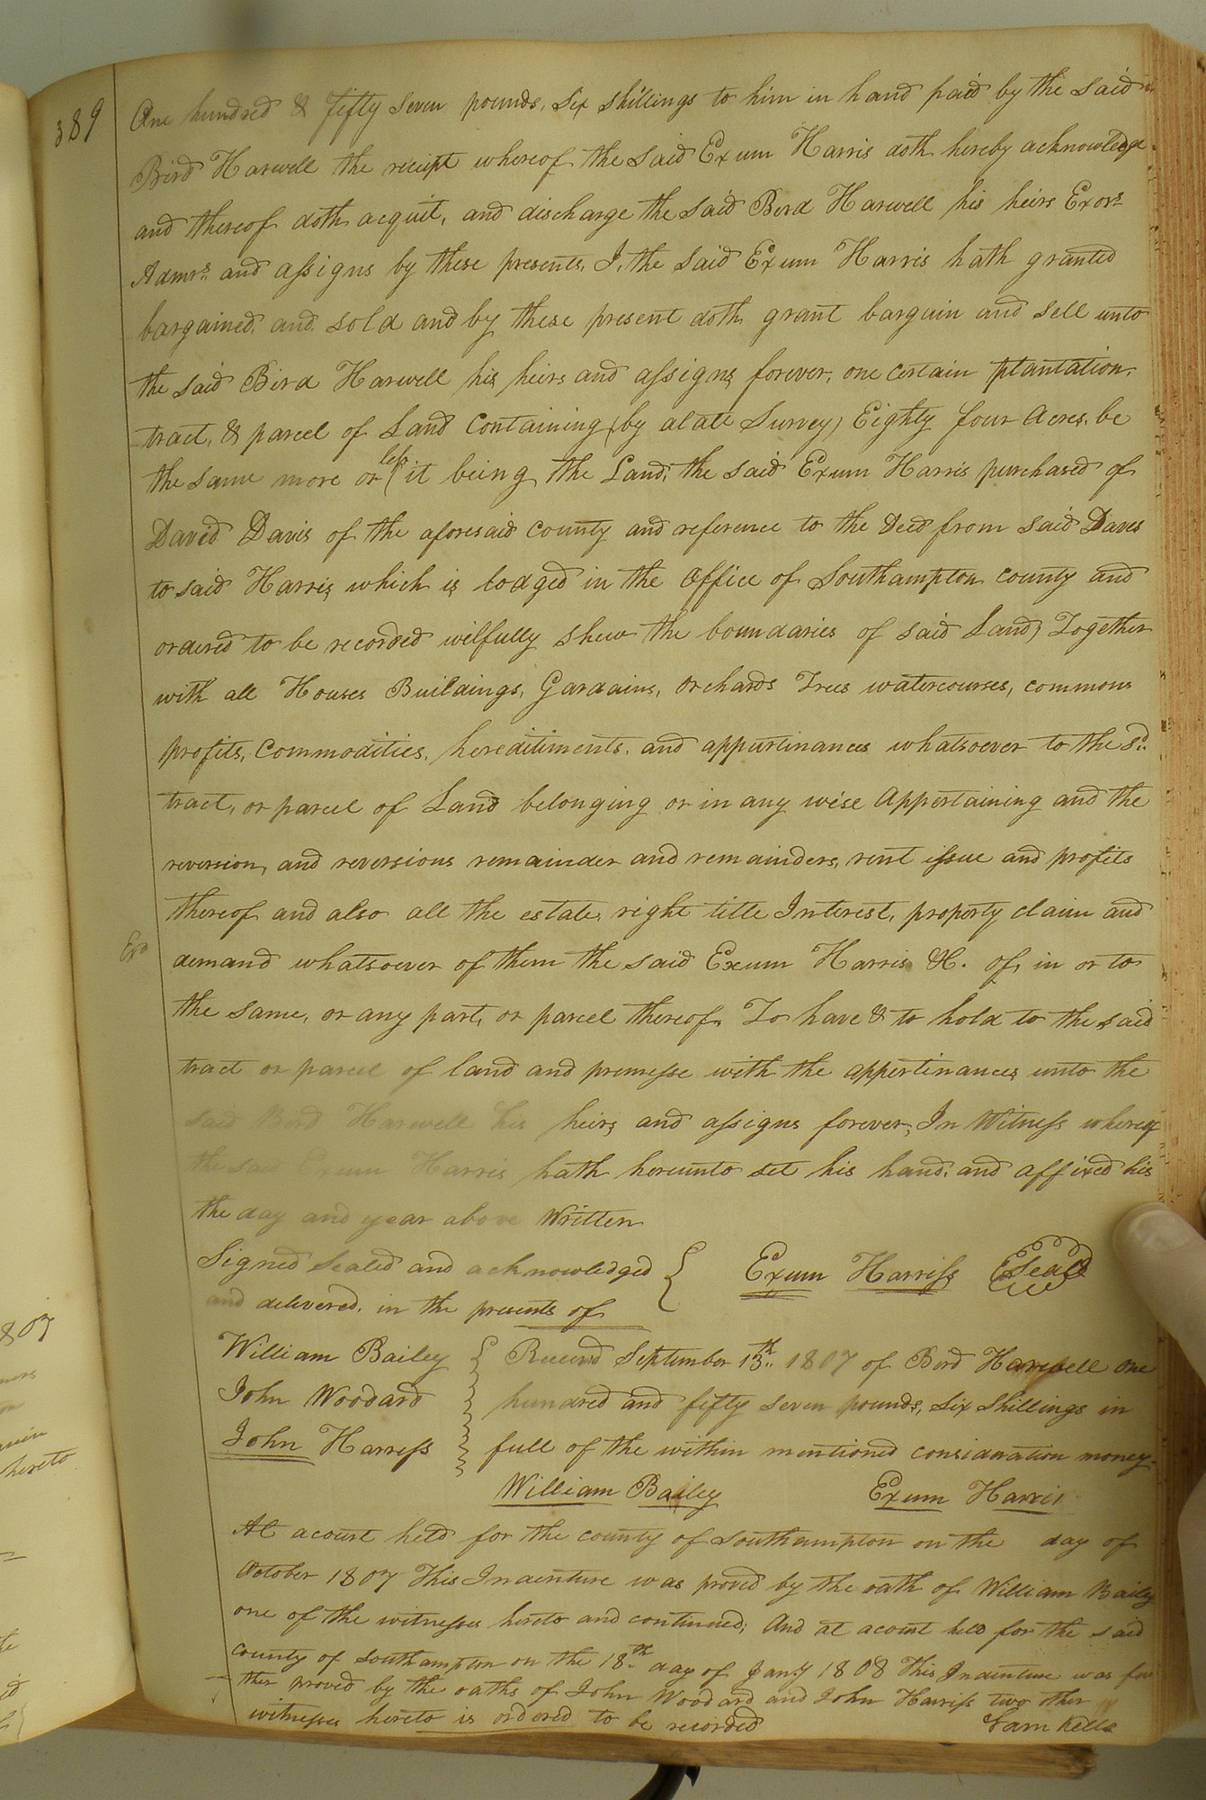 389
One hundred & fifty seven pounds, six shillings to him in hand paid by the said
Bird Harwell the receipt whereof the said Exum Harris doth hereby acknowledge
and thereof doth acquit, and discharge the said Bird Harwell his heirs Exors
Admrs. and assigns by these presents, I, the said Exum Harris hath granted
bargained. and. sold and by these present doth grant bargain and sell unto
the said Bird Harwell his heirs and assigns forever, one certain plantation,
tract, & parcel of Land Containing (by a late Survey) Eighty four Acres. be
the same more or less (it being the Land, the said Exum Harris purchased of
David Davis of the aforesaid county and reference to the deed from said Daves
to said Harris which is lodged in the office of Southampton county and
ordered to be recorded wilfully shew the boundaries of said Land) Together
with all Houses Buildings, Gardains, orchards Trees watercourses, commons
profits, Commodities, hereditiments. and appurtinances whatsoever to the sd.
tract, or parcel of Land belonging or in any wise Appertaining and the
reversion, and reversions remainder and remainders, rent issue and profits
thereof and also all the estate, right title Interest, property claim and
Exd
demand whatsoever of them the said Exum Harris H. of, in or to
the same, or any part, or parcel thereof. To have & to hold to the said
tract or parcel of land and premesse with the appertinances unto the
said Bird Harwell his heirs and assigns forever, In Witness whereof
the said Exum Harris hath hereunto set his hand. and affixed his
the day and year above Written
Signed Sealed and acknowledged { Exum Harriss Seal
and delivered. in the presents of
William Bailey { Received September 13th.. 1807 of Bird Harwell one
John Woodard hundred and fifty seven pounds, six shillings in
John Harress full of the within mentioned consideration money
William Bailey Exum Harris
At a court held for the county of Southampton on the day of
October 1807 This Indenture was proved by the oath of William Bailey
one of the witnesses hereto and continued; And at acourt held for the said
county of Southampton on the 18th day of Jany 1808 This Indenture was fur
ther proved by the oaths of John Woodard and John Harriss two other
witnesses hereto is ordered to be recorded Sam Kello
1807
hereto